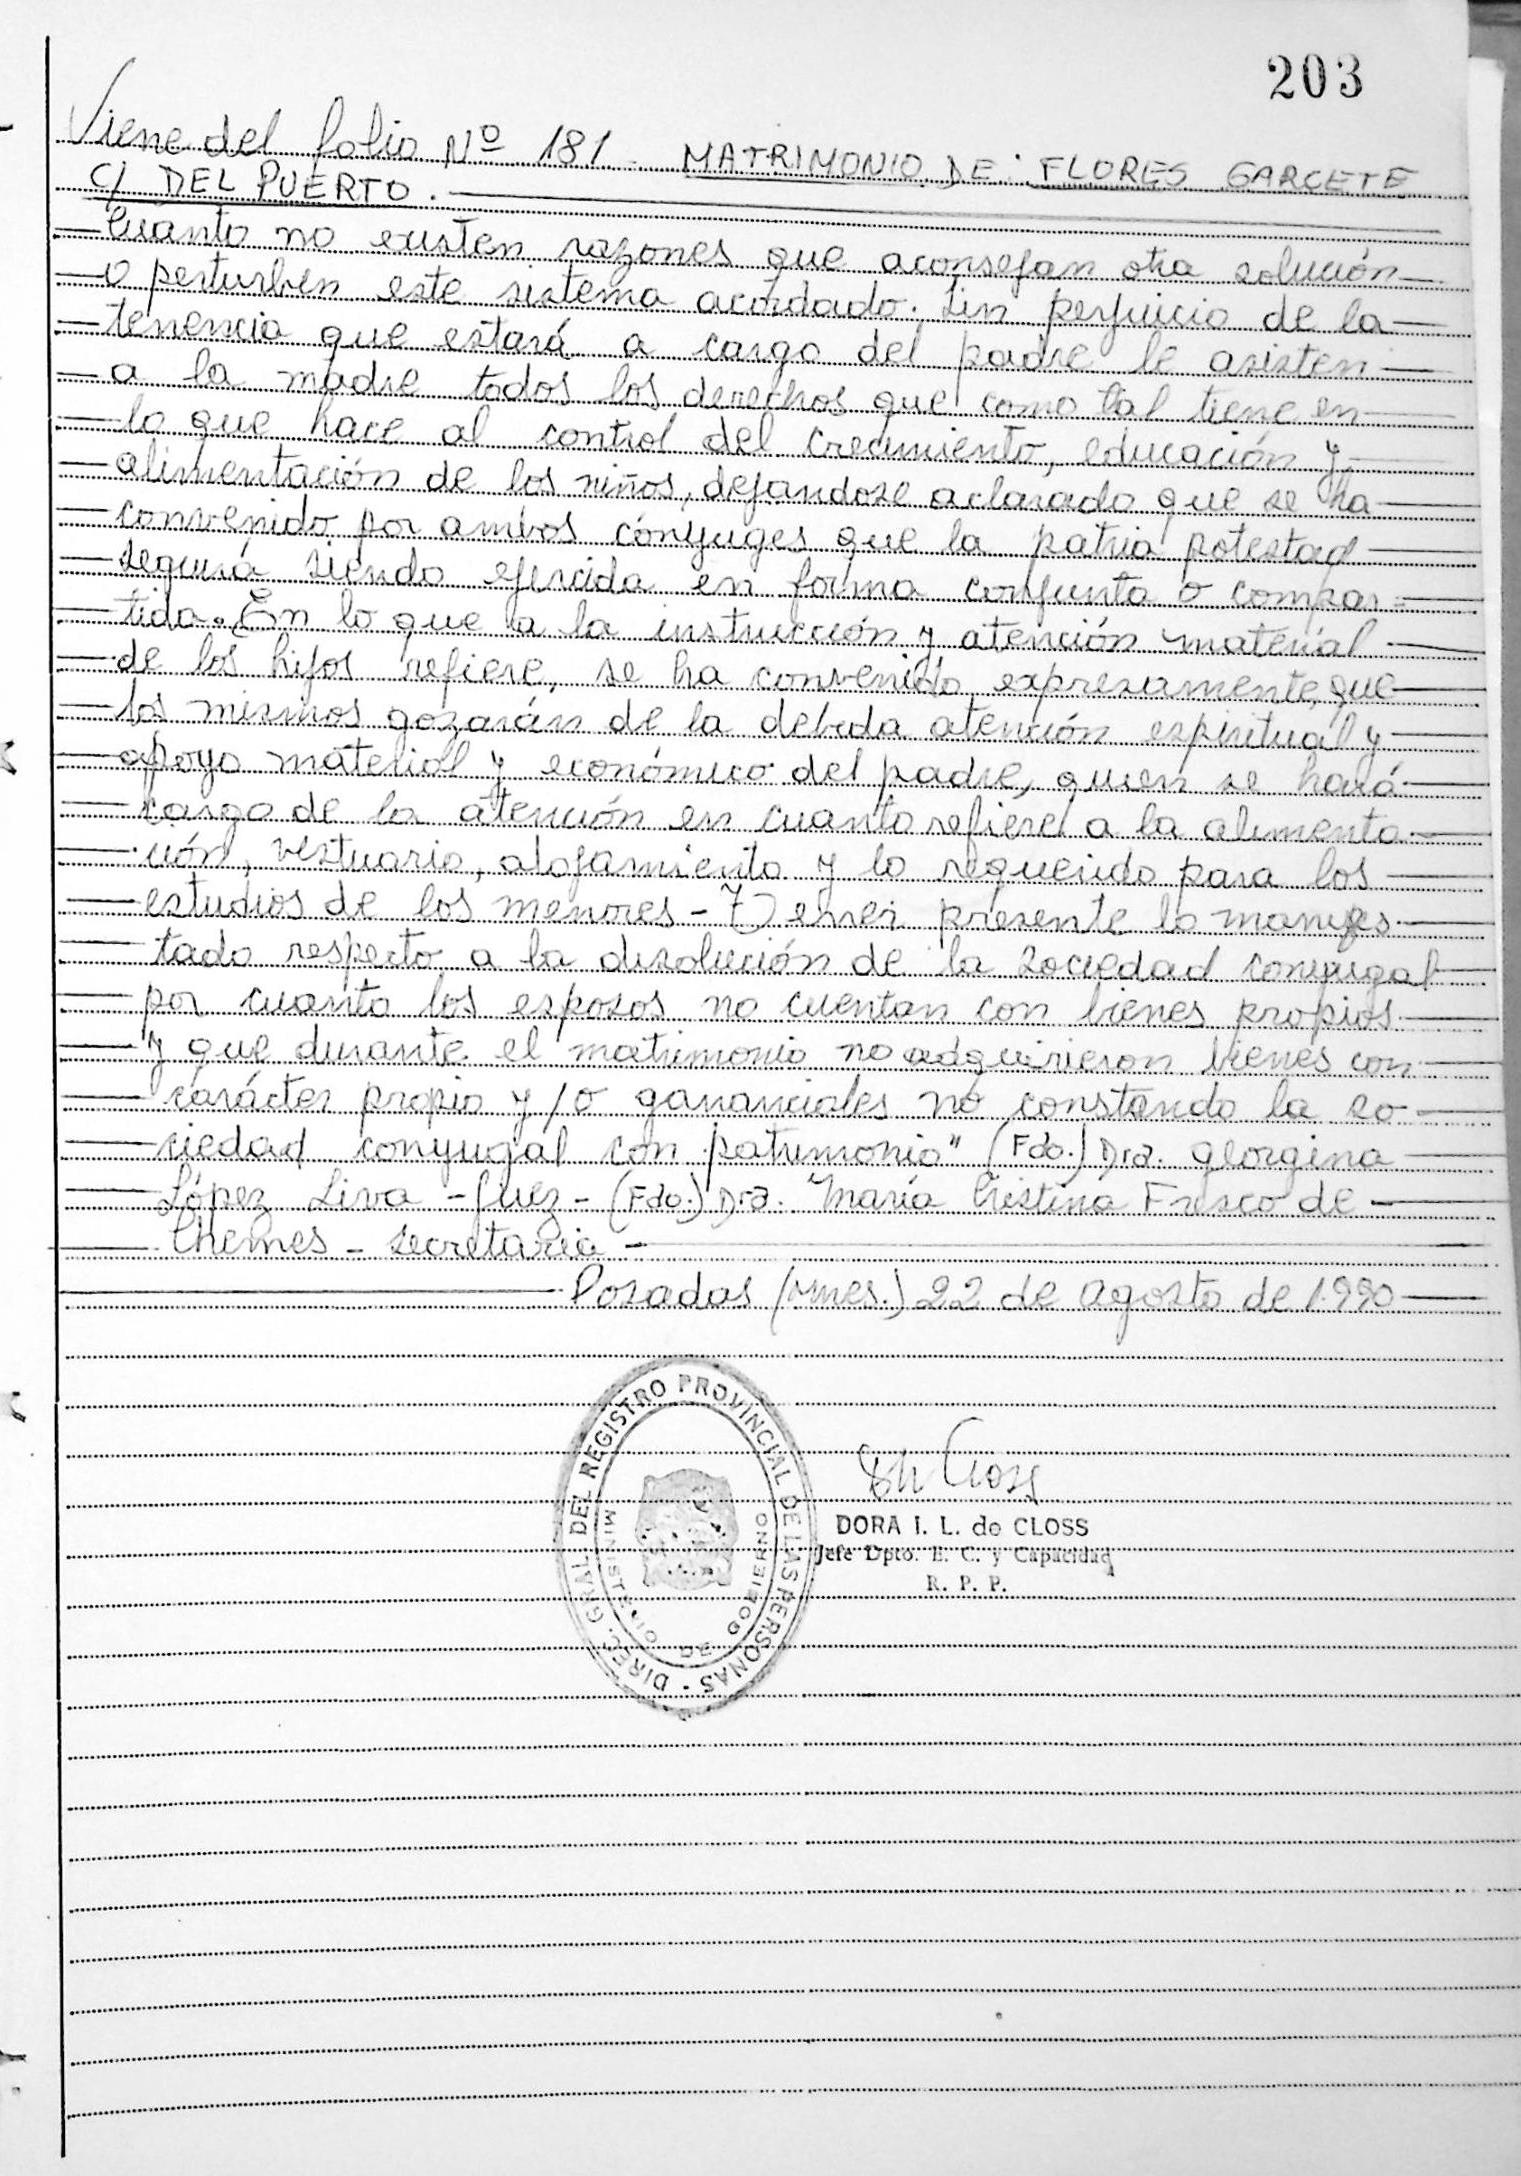 203
Viene del folio Nº 181. MATRIMONIO DE: FLORES GARCETE
C/ DEL PUERTO.
Cuanto no existen razones que aconsejan otra solución
o perturben este sistema acordado. Sin perjuicio de la
tenencia que estará a cargo del padre le asisten
a la madre todos los derechos que como tal tiene en
lo que hace al control del crecimiento, educación y
alimentación de los niños, dejandose aclarado que se ha
convenido por ambos cónyuges que la patria potestad
seguirá siendo ejercida en forma conjunta o compar=
tida. En lo que a la instrucción y atención material
de los hijos refiere, se ha convenido expresamente, que
los mismos gozarán de la debida atención espiritual y
apoyo material y económico del padre, quien se hará
cargo de la atención en cuanto refiere a la alimenta-
ción, vestuario, alojamiento y lo requerido para los
estudios de los menores - 7) presente lo manifes-
tado respecto a la disolución de la sociedad conyugal
por cuanto los esposos no cuentan con bienes propios
y que durante el matrimonio no adquirieron bienes con
carácter propio y/o gananciales no constando la so-
ciedad conyugal con patrimonio" (Fdo.) Dra. Georgina
López Liva - Juez - (Fdo.) Dra. María Cristina Fresco de -
Chemes - secretaria -
Posadas (Mnes.) 22 de agosto de 1.990
DIREC. GRAL. DEL REGISTRO PROVINCIAL DE LAS PERSONAS
MINISTERIO DE GOBIERNO
DORA I. L. de CLOSS
Jefe Dpto. E. C. y Capacidad
R. P. P.